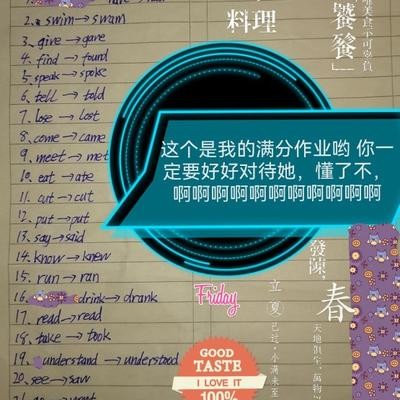 2. swim → swam
3. give → gave
4. find → found
5. speak → spoke
6. tell → told
7. lose → lost
8. come → came
9. meet → met
10. eat → ate
11. cut → cut
12. put → put
13. say → said
14. know → knew
15. run → ran
16. drink → drank
17. read → read
18. take → took
19. understand → understood
20. see → saw
料理
唯美食不可辜負
饕餮」
这个是我的满分作业哟 你一
定要好好对待她，懂了不，
啊啊啊啊啊啊啊啊啊啊啊啊
發陳，
春
Friday
立夏
已过，小满未至
天地俱生，萬物
GOOD
TASTE
I LOVE IT
100%